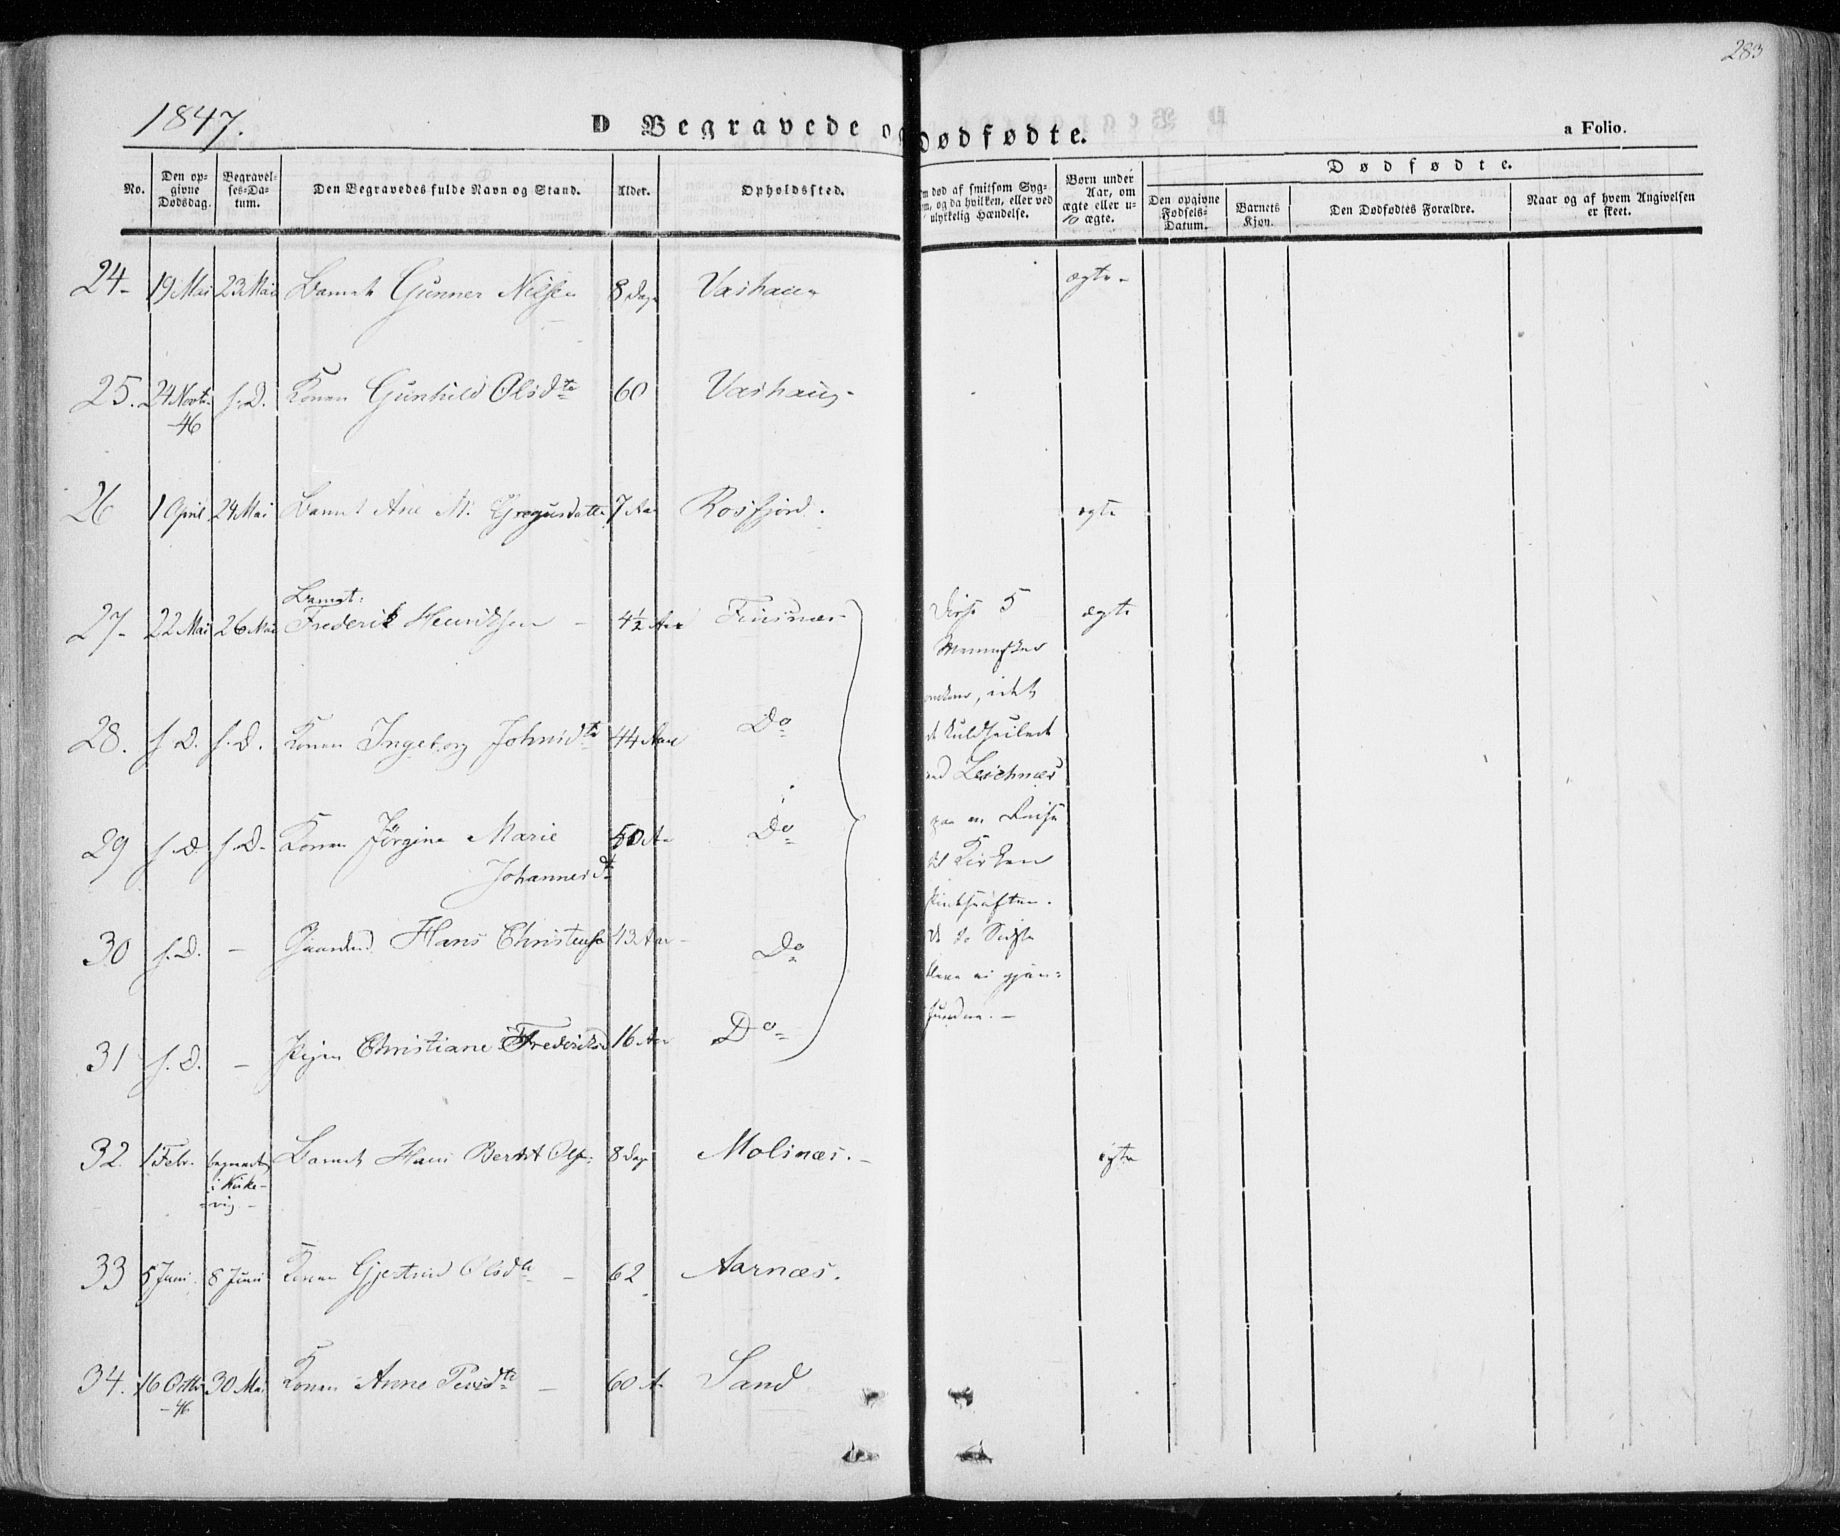 283
1847.
D Begravede og Dødfødte.
a Folio.
No.
Den op-
givne
Dødsdag.
Begravel-
ses-Da-
tum.
Den Begravedes fulde Navn og Stand.
Alder.
Opholdssted.
død af smitsom Syg-
og da hvilken, eller ved
ulykkelig Hændelse.
Børn under
10 Aar, om
ægte eller u-
ægte.
Dødfødte.
Den opgivne
Fødsels-
Datum.
Barnets
Kjøn.
Den Dødfødtes Forældre.
Naar og af hvem Angivelsen
er skeet.
24- 19 Mai 23 Mai Barnet Gunner Nilsen 8 Dage Vashaug ægte-
25. 24 Novbr -46 s.D. Konen Gunhild Olsdtr 60 Vashaug-
26 1 April 24 Mai Barnet Ane M. Gregusdatter 7 Aar Rosfjord. ægte
27- 22 Mai 26 Mai Barnet: Frederik Henriksen - 4½ Aar Finsnæs ægte
28. s.D. s.D. Konen Ingeborg Johnsdtr 44 Aar Do
29 s.D s.D. Konen Jørgine Marie 50 Aar Do
Johannesdtr
30 s.D. - Gaardmd Hans Christensen 43 Aar - Do
31 s.D. - Pigen Christiane Frederiksd 16 Aar Do
Disse 5
Mennesker
omkom, idet
de kuldseilede
ved Leichnæs
paa en Reise
til Kirken
de to Sidste
bleve ei gjen-
fundne. -
32. 1 Febr. begravet i Kirke-
vig - Barnet Hans Berndt Ols: 8 Dage Molinæs. - ægte
33 5 Juni. 8 Juni Konen Gjertrud Olsdtr - 62 Aarnæs.
34. 16 Octbr -46 30 Mai Konen Anne Pedsdtr - 60 A. Sand